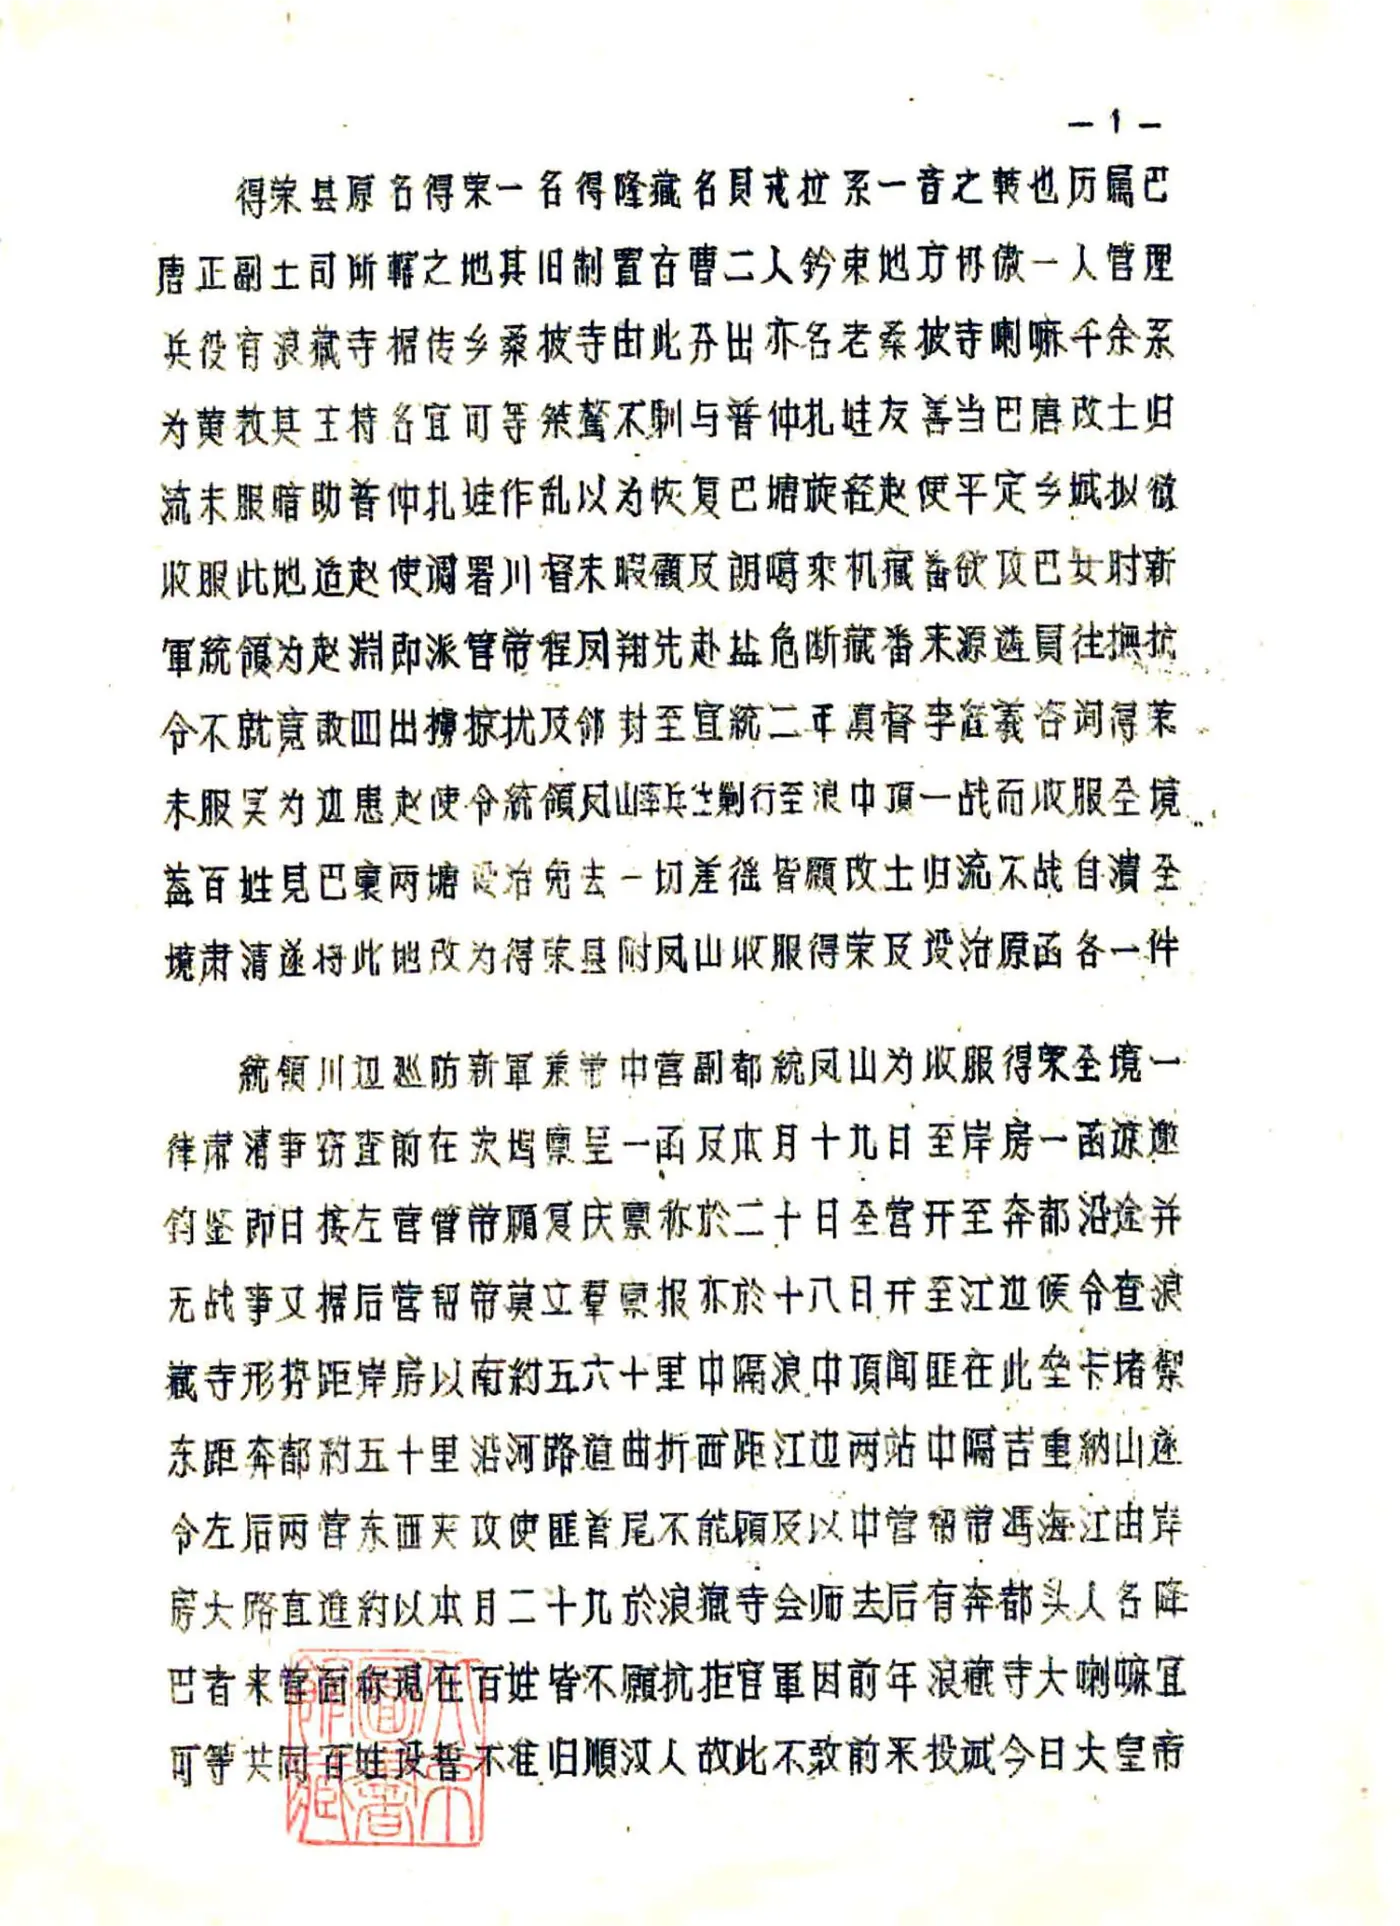 — 1 —
得荣县原名得荣一名得隆藏名貝戎拉系一音之转也历属巴
唐正副土司所轄之地其旧制置古曹二人鈐束地方协傲一人管理
兵役有浪藏寺据传乡桑披寺由此芬出亦名老桑披寺喇嘛千余系
为黄教其主持名宜可等桀驁不馴与普仲扎娃友善当巴唐改土归
流未服暗助普仲扎娃作乱以为恢复巴塘旋経赵使平定乡城拟欲
收服此地适赵使调署川督未暇顧及朗噶乘机藏番欲攻巴女时新
軍統領为赵淵即派管带程凤翔先赴盐危断藏番来源遴員往撫抗
令不就竟敢四出擄掠扰及邻封至宣統二年滇督李経羲咨询得荣
未服实为边患赵使令統領凤山率兵往剿行至浪中頂一战而收服全境
盖百姓見巴裏两塘设治免去一切差徭皆願改土归流不战自潰全
境肃清遂将此地改为得荣县附凤山收服得荣及设治原函各一件
統領川边巡防新軍兼带中营副都統凤山为收服得荣全境一
律肃清事窃查前在茨坞禀呈一函及本月十九日至岸房一函谅邀
钧鉴即日接左营管带顧复庆禀称於二十日全营开至奔都沿途并
无战事又据后营帮带莫立羣禀报亦於十八日开至江边候令查浪
藏寺形势距岸房以南約五六十里中隔浪中頂闻匪在此垒卡堵禦
东距奔都約五十里沿河路道曲折西距江边两站中隔吉重納山遂
令左后两营东西夹攻使匪首尾不能顧及以中营帮带馮海江由岸
房大路直進約以本月二十九於浪藏寺会师去后有奔都头人名降
巴者来营面称現在百姓皆不願抗拒官軍因前年浪藏寺大喇嘛宜
可等共同百姓设誓不准归順汉人故此不敢前来投诚今日大皇帝